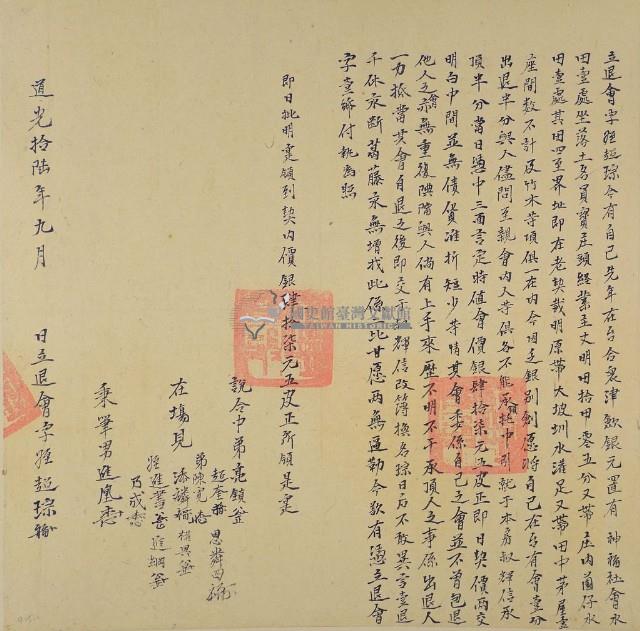 立退會字姪超琮今有自己先年在台合衆津歛銀元置有 神福社會水
田壹處坐落土名員寶庄頭經業主丈明田拾田零五分又帶庄內菌仔水
田壹處其田四至界址即在老契載明原帶大坡圳水溝足又帶田中茅屋壹
座間数不計及竹木等項俱一在內今因乏銀別創愿將自己在台有會壹份
出退半分與人儘問至親會內人等俱各不能承領托中引就于本房叔輝信承
頂半分當日憑中三面言定時值會價銀肆拾柒元五皮正即日契價兩交
明白中間並無債貨准折短少等情其會委係自己之會並不曾包退
他人之會亦無重復典階與人倘有上手來歷不明不干承頂人之事係出退人
一力抵當其會自退之後即交于 輝信改簿換名踪日后不敢異言壹退
千休永断葛藤永無增找此係比甘愿兩無逼勒今欲有憑立退會
字壹紙付執為照
即日批明寔領到契內價銀肆拾柒元五皮正所領是寔
國史館臺灣文獻館
TAIWAN HISTORICA
說合中弟亮鎮
超奎
思舜
弟陳寬
在場見
添麟
相異
姪進書
進綱
乃成
秉筆男進鳳
道光拾陸年九月 日立退會字姪超琮